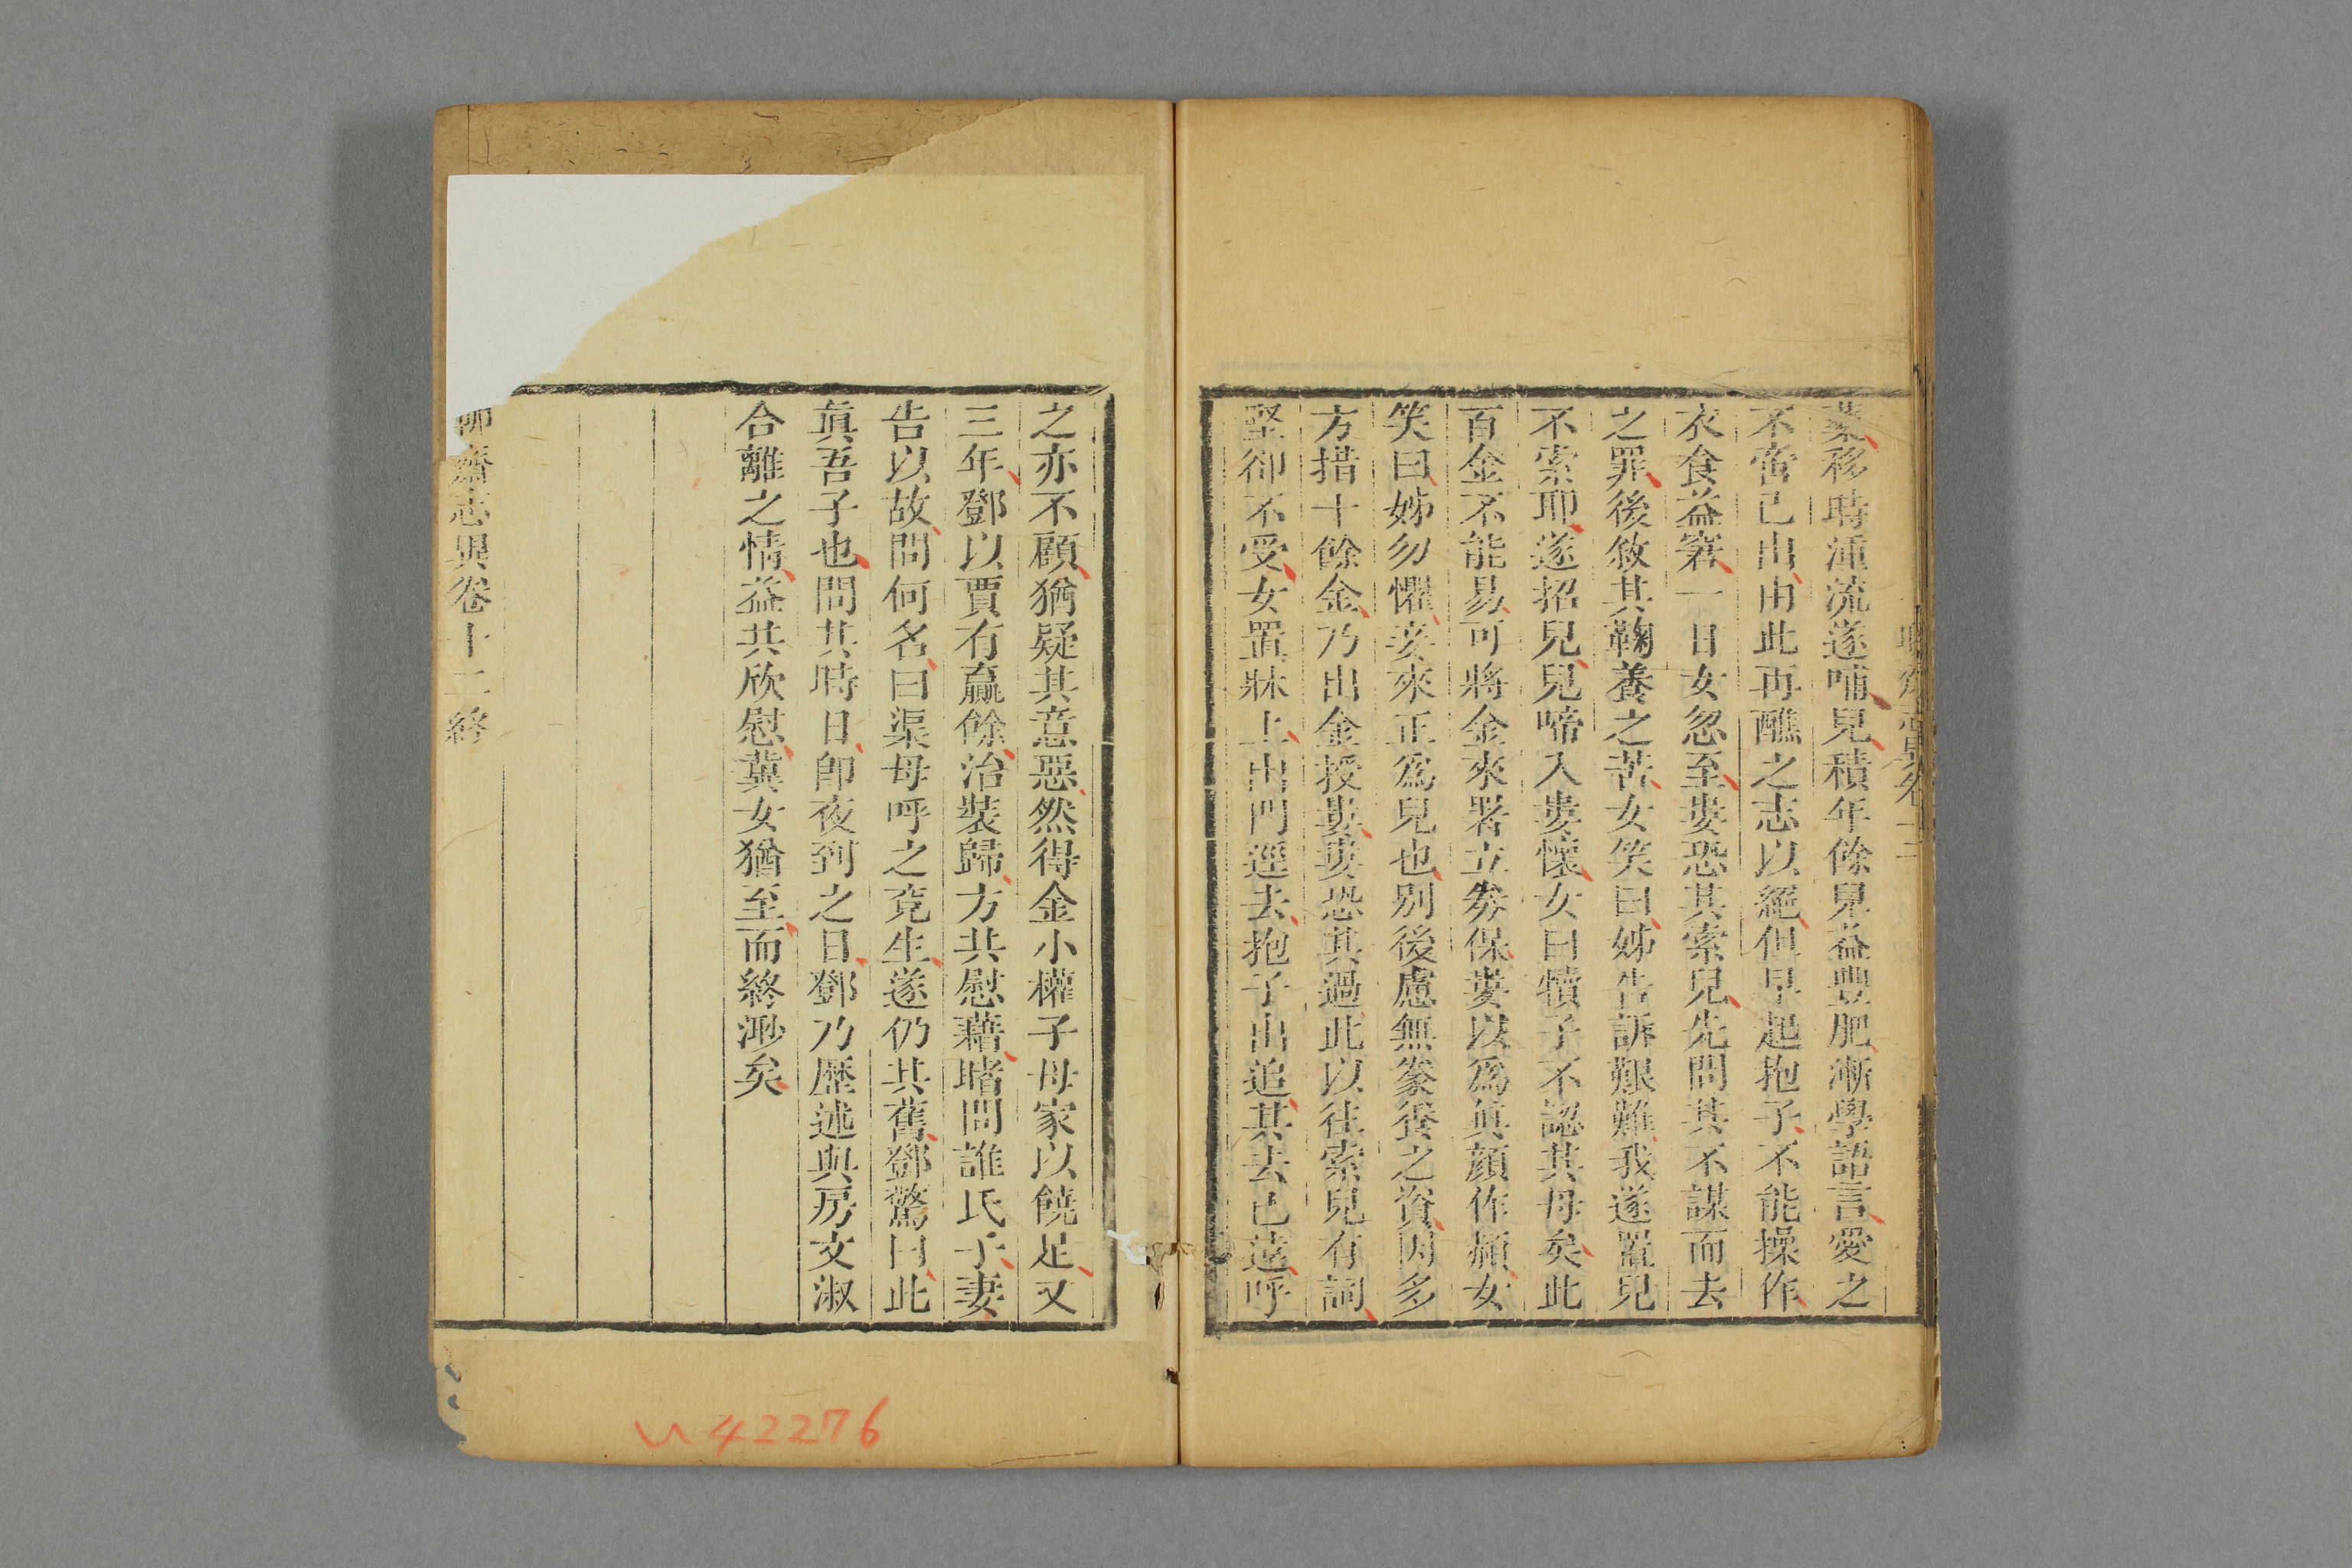 藥移時湩流遂哺兒積年餘兒益豐肥漸學語言愛之
不啻已出由此再醮之志以絕但早起抱子不能操作
衣食益窘一日女忽至婁恐其索兒先問其不謀而去
之罪後敘其鞠養之苦女笑曰姊告訴艱難我遂置兒
不索耶遂招兒兒啼入婁懷女曰犢子不認其母矣此
百金不能易可將金來署立券保婁以爲真顏作赬女
笑曰姊勿懼妾來正爲兒也别後慮無豢養之資因多
方措十餘金乃出金授婁婁恐其過此以往索兒有詞
堅卻不受女置牀上出門逕去抱子出追其去已遠呼
之亦不顧猶疑其意惡然得金小權子母家以饒足又
三年鄧以賈有贏餘治裝歸方共慰藉睹問誰氏子妻
告以故問何名曰渠母呼之兗生遂仍其舊鄧驚曰此
眞吾子也問其時日卽夜到之日鄧乃歷述與房文淑
合離之情益共欣慰冀女猶至而終渺矣
聊齋志異卷十二終
42276